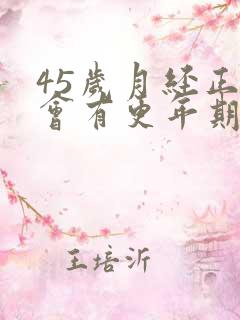 45歲月经正
會有更年期
王培沂